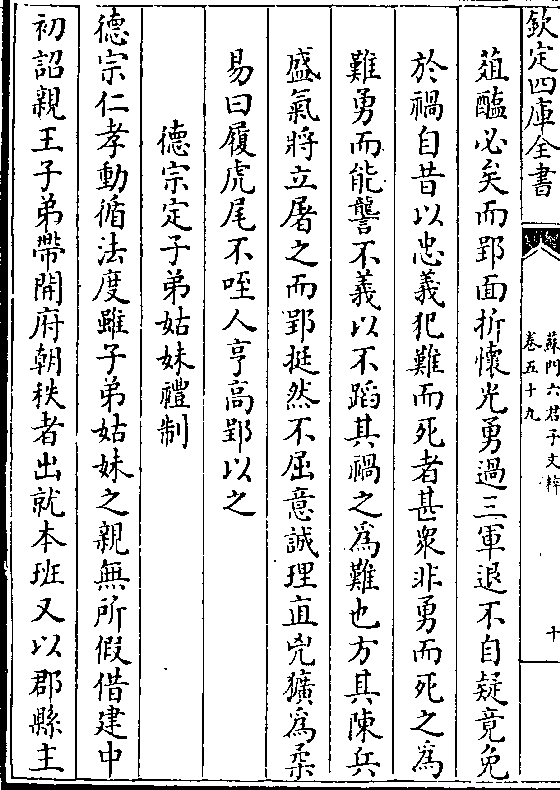 欽定四庫全書
蘇門六君子文粹
卷五十九
十
葅醢必矣而郢面折懷光勇過三軍退不自疑竟免
於禍自昔以忠義犯難而死者甚衆非勇而死之為
難勇而能讋不義以不蹈其禍之為難也方其陳兵
盛氣將立屠之而郢挺然不屈意誠理直兇獷為柔
易曰履虎尾不咥人亨高郢以之
德宗定子弟姑妹禮制
德宗仁孝動循法度雖子弟姑妹之親無所假借建中
初詔親王子弟帶開府朝秩者出就本班又以郡縣主